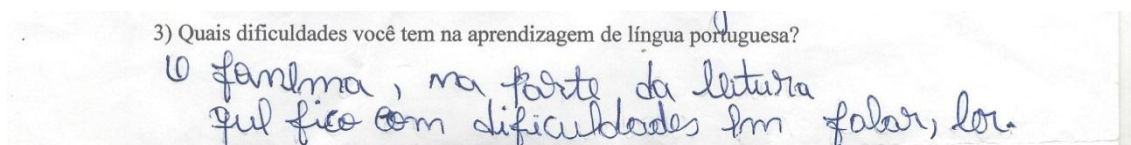 3) Quais dificuldades você tem na aprendizagem de língua portuguesa?
O fonema, na parte da leitura
que fico com dificuldades em falar, ler.